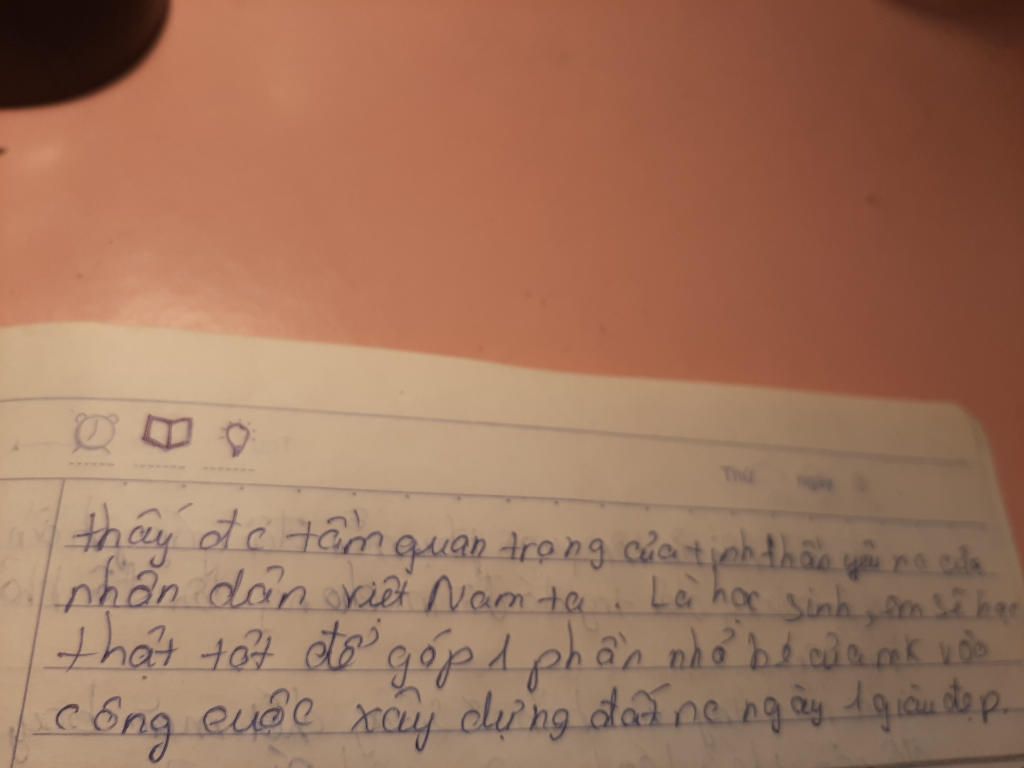 Thứ Ngày
thấy đc tầm quan trọng của tinh thần yêu nc của
nhân dân việt Nam ta. Là học sinh, em sẽ học
thật tốt để góp 1 phần nhỏ bé của mk vào
công cuộc xây dựng đất nc ngày 1 giàu đẹp.